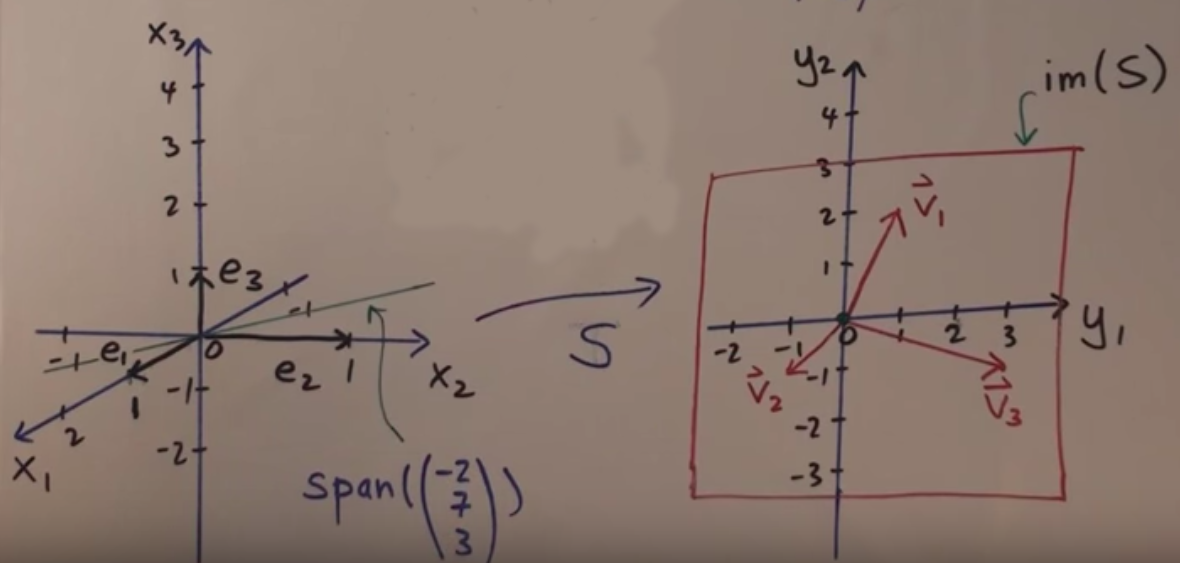 x₃
4
3
2
1
e₃
-1
-1
e₁
0
e₂
1
x₂
1
-1
2
-2
x₁
span((-2
7
3))
S
y₂
im(S)
4
3
v⃗₁
2
1
y₁
-2
-1
0
1
2
3
v⃗₂
-1
v⃗₃
-2
-3